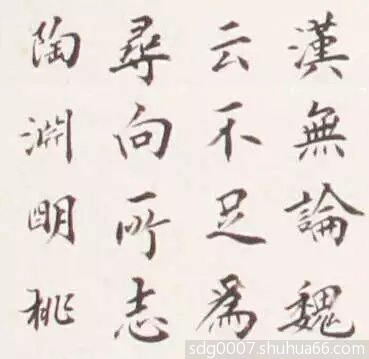 漢無論魏
云不足為
尋向所志
陶淵明桃
sdg0007.shuhua66.com